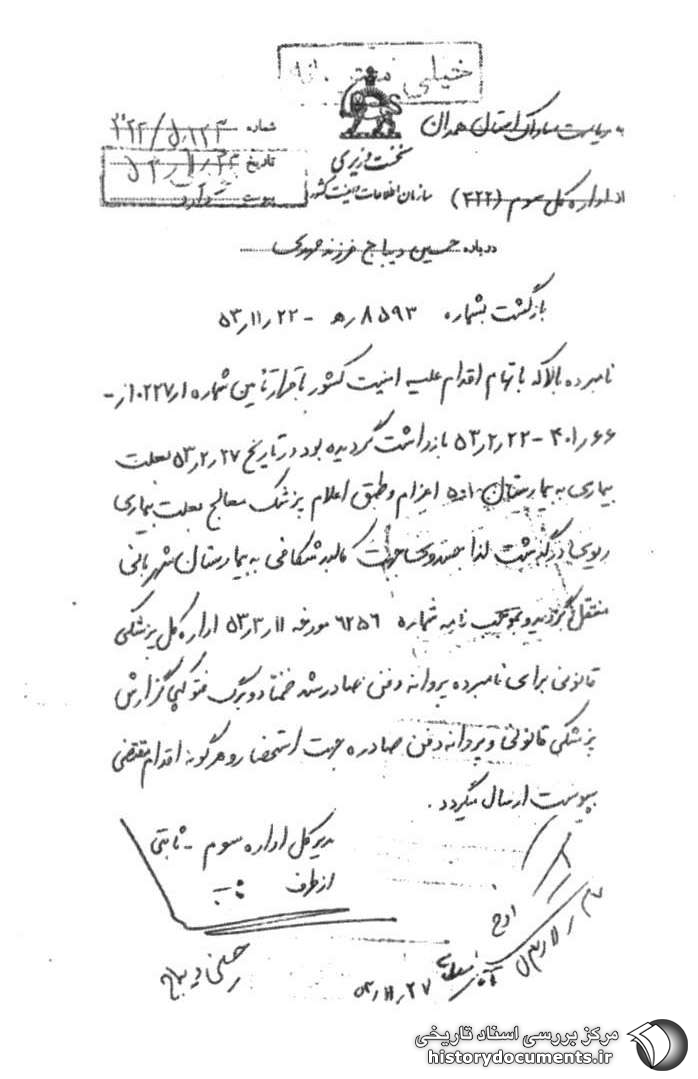 خیلی
به ریاست ساواک استان همدان
شماره ۳۲۲/۵۰۱۲۳
نخست وزیری
تاریخ
از اداره کل سوم (۳۲۲)
سازمان اطلاعات و امنیت کشور
پیوست دارد
درباره حسین دیباج فرزند مهدی
بازگشت بشماره ۸۵۹۳/ه‍ - ۵۳/۱۱/۲۲
نامبرده بالا که باتهام اقدام علیه امنیت کشور با قرار تأمین شماره
۴۰۱/۶۶ - ۵۳/۲/۲۲ بازداشت گردیده بود در تاریخ ۵۳/۲/۲۷ بعلت
بیماری به بیمارستان ۵۰۱ اعزام و طبق اعلام پزشک معالج بعلت بیماری
ریوی درگذشت لذا جسد وی جهت کالبد شکافی به بیمارستان شهربانی
منتقل گردید و بموجب نامه شماره ۶۲۵۶ مورخه ۵۳/۳/۱۱ اداره کل پزشکی
قانونی برای نامبرده پروانه دفن صادر شد ضمناً دو برگ فتوکپی گزارش
پزشکی قانونی و پروانه دفن صادره جهت استحضار و هرگونه اقدام مقتضی
بپیوست ارسال میگردد .
مدیر کل اداره سوم - ثابتی
از طرف
۵۳/۱۱/۲۷
حسین دیباج
مرکز بررسی اسناد تاریخی
historydocuments.ir